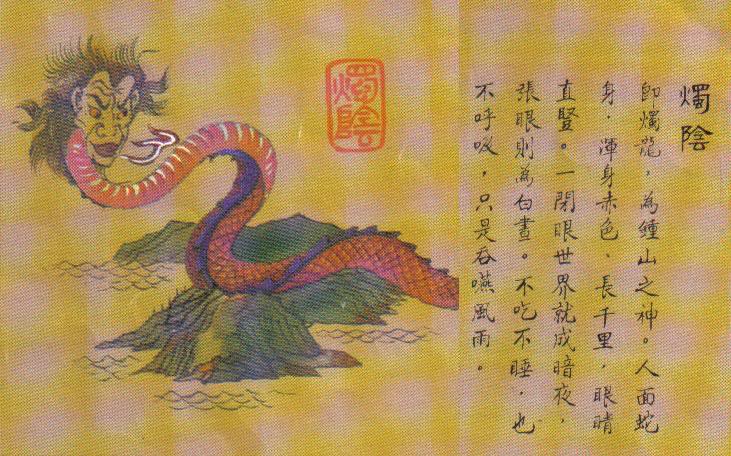 燭陰
即燭龍，為鍾山之神。人面蛇
身，渾身赤色、長千里，眼睛
直豎。一閉眼世界就成暗夜，
張眼則為白晝。不吃不睡，也
不呼吸，只是吞嚥風雨。
燭陰